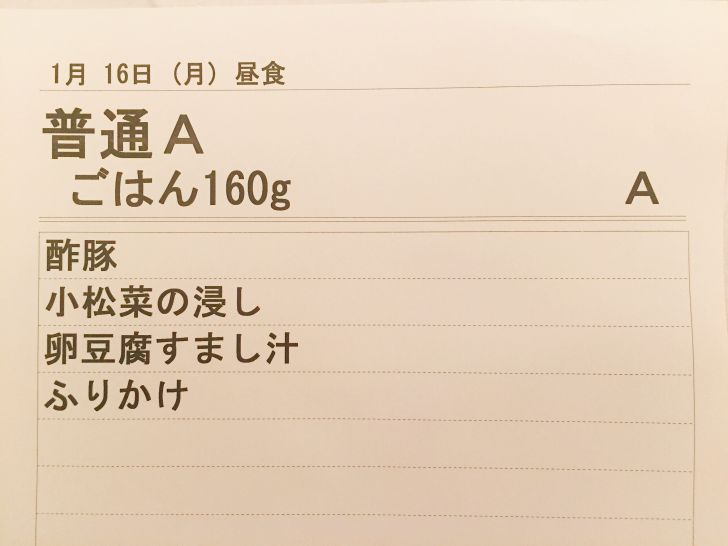 1月 16日 (月) 昼食
普通A
ごはん160g A
酢豚
小松菜の浸し
卵豆腐すまし汁
ふりかけ